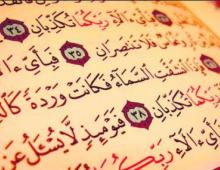 ءَالَآءِ رَبِّكُمَا تُكَذِّبَانِ ٣٤
فَلَا تَنتَصِرَانِ ٣٥ فَبِأَيِّ
ٱنشَقَّتِ ٱلسَّمَآءُ فَكَانَتْ وَرْدَةً
تُكَذِّبَانِ ٣٨ فَيَوْمَئِذٍ لَّا يُسْـَٔلُ عَن
ءَالَآءِ رَبِّكُمَا